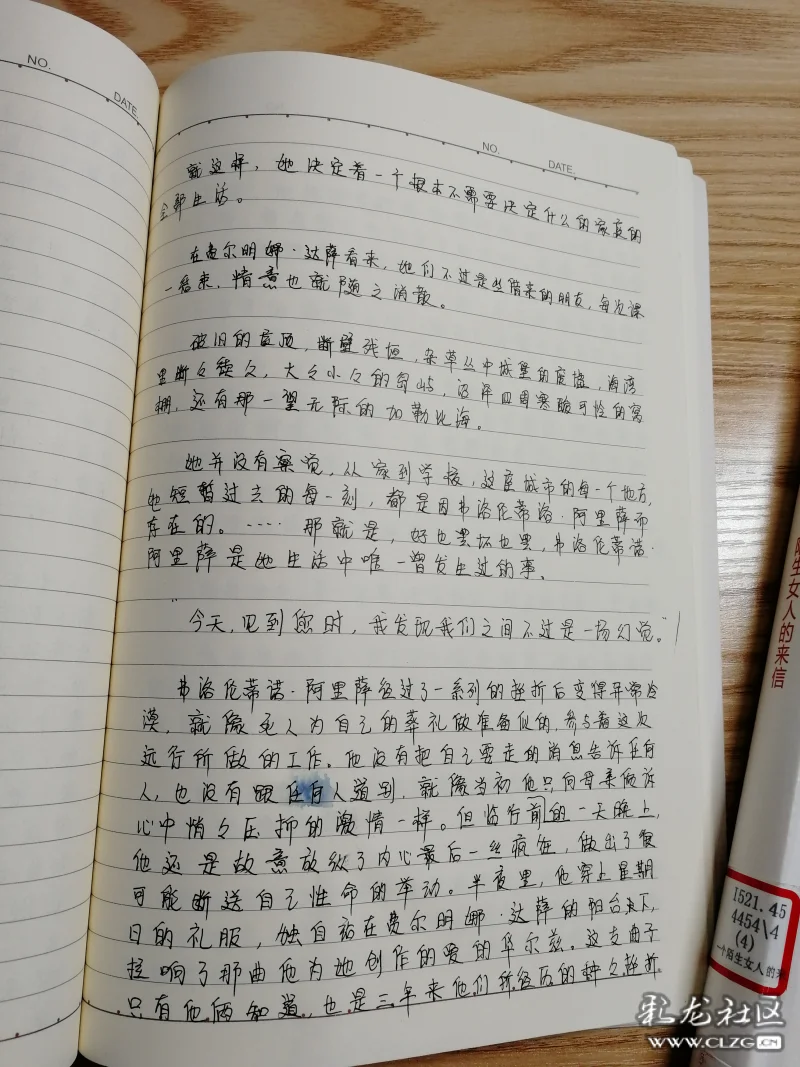 NO.
DATE.
NO.
DATE.
就这样，她决定着一个根本不需要决定什么的家庭的
全部生活。
在费尔明娜·达萨看来，她们不过是些借来的朋友，每次课
一结束，情意也就随之消散。
破旧的屋顶，断壁残垣，杂草丛中城堡的废墟，海湾
里断々续々，大々小々的岛屿，沼泽四周寒酸可怜的窝
棚，还有那一望无际的加勒比海。
她并没有察觉，从家到学校，这座城市的每一个地方，
她短暂过去的每一刻，都是因弗洛伦蒂诺·阿里萨而
存在的。…… 那就是，好也罢坏也罢，弗洛伦蒂诺·
阿里萨是她生活中唯一曾发生过的事。
“今天，见到您时，我发现我们之间不过是一场幻觉。”
弗洛伦蒂诺·阿里萨经过了一系列的挫折后变得异常冷
漠，就像死人为自己的葬礼做准备似的，参与着这次
远行所做的工作。他没有把自己要走的消息告诉任何
人，也没有跟任何人道别，就像当初他只向母亲倾诉
心中悄々压抑的激情一样。但临行前的一天晚上，
他还是故意放纵了内心最后一丝疯狂，做出了很
可能断送自己性命的举动。半夜里，他穿上星期
日的礼服，独自站在费尔明娜·达萨的阳台底下，
拉响了那曲他为她创作的爱的华尔兹。这支曲子
只有他俩知道，也是三年来他们所经历的种々挫折
陌生女人的来信
I521.45
4454\4
(4)
一个陌生女人的来
彩龙社区
WWW.CLZG.CN